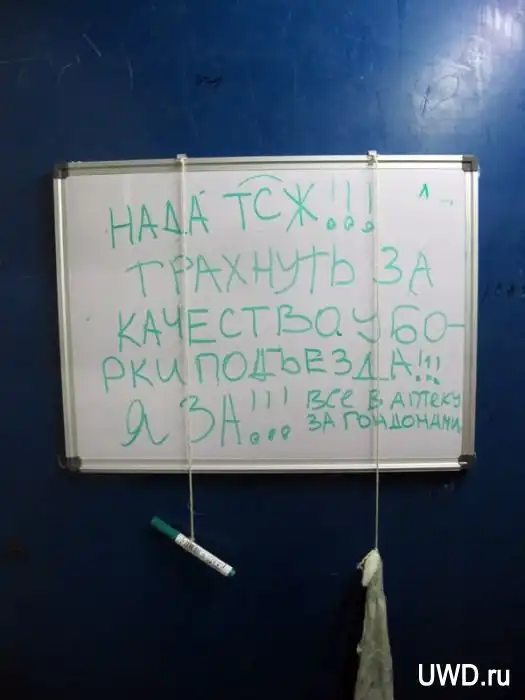 НАДА ТСЖ!!!
ТРАХНУТЬ ЗА
КАЧЕСТВО УБО-
РКИ ПОДЪЕЗДА!!!
Я ЗА!!!...
ВСЕ В АПТЕКУ
ЗА ГОНДОНАМИ
UWD.ru